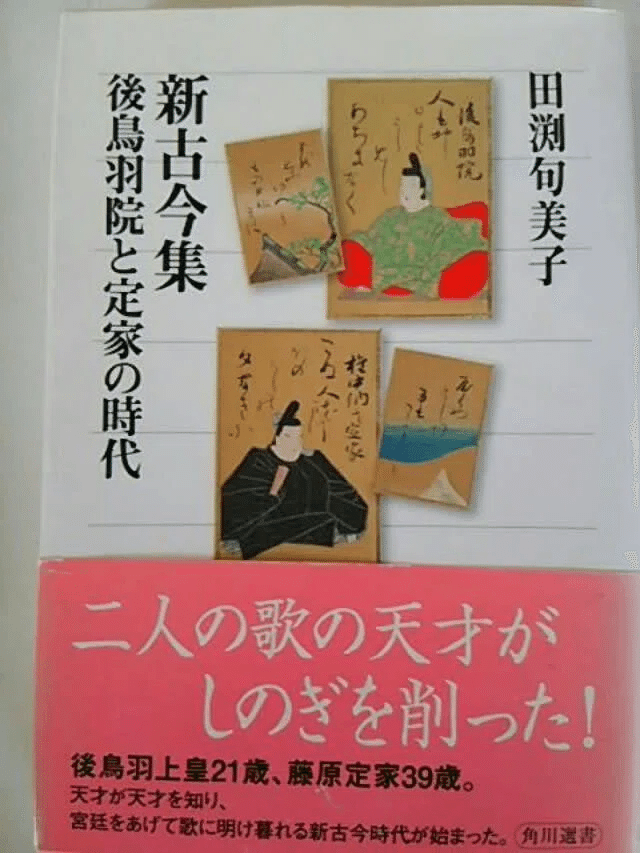 田渕句美子
新古今集
後鳥羽院と定家の時代
後鳥羽院
人も
権中納言定家
二人の歌の天才が
しのぎを削った!
後鳥羽上皇21歳、藤原定家39歳。
天才が天才を知り、
宮廷をあげて歌に明け暮れる新古今時代が始まった。
角川選書